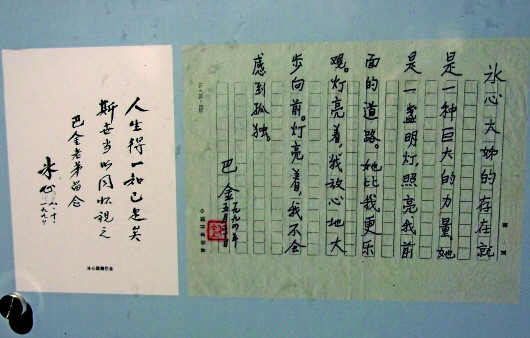 冰心大姊的存在就
是一种巨大的力量。她
是一盏明灯，照亮我前
面的道路。她比我更乐
观。灯亮着，我放心地大
步向前。灯亮着，我不会
感到孤独。
巴金
一九九四年
五月二十日
人生得一知己足矣
斯世当以同怀视之
巴金老弟留念
冰心
冰心题赠巴金